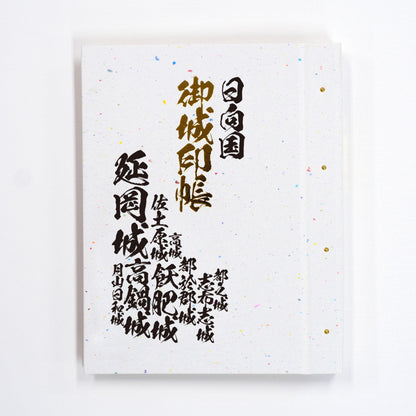 日向国
御城印帳
都之城
志布志城
都於郡城
高城
飫肥城
佐土原城
高鍋城
延岡城
月山日和城